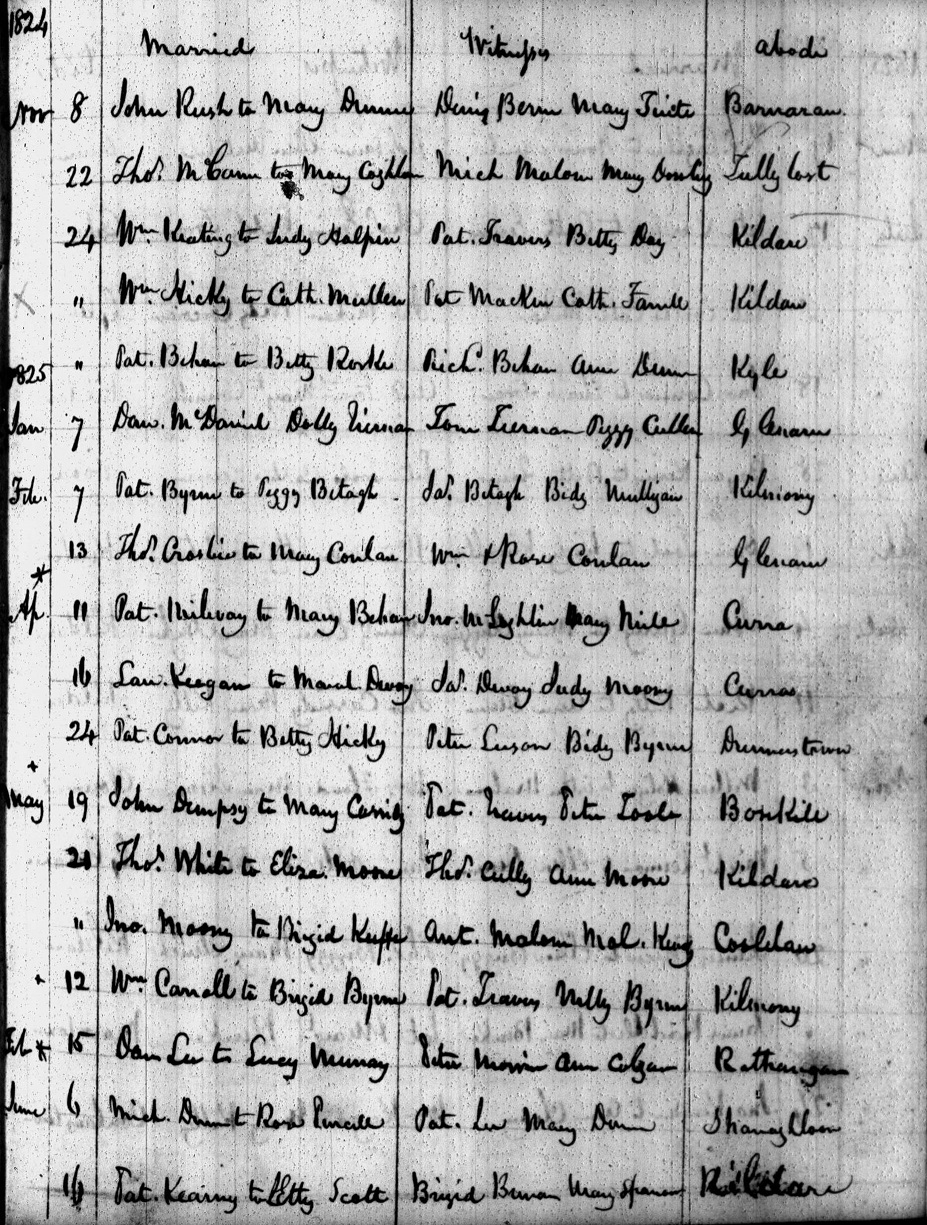 1824
Married Witnesses abode
Nov 8 John Rush to Mary Dunne Denis Mary Barnaran
22 Thos. McCann to Mary Coghlan Mich Malone Mary Tully lost
24 Wm Keating to Judy Halpin Pat. Travers Betty Day Kildare
" Wm Hicky to Cath. Mullen Pat Macken Cath. Kildare
1825 " Pat. Behan to Betty Rorke Richd. Behan Ann Dunn Kyle
Jan 7 Dan. McDaniel Dolly Tiernan Tom Tiernan Peggy Cullen Glenaree
Feb. 7 Pat. Byrne to Peggy Betagh Jas. Betagh Bidy Mulligan Kilmony
13 Thos. to Mary Conlan Wm & Rose Conlan Glenaree
* Ap. 11 Pat. to Mary Behan Jno. McLoghlin Mary Curra
16 Lau. Keegan to Devoy Jas. Devoy Judy Moony Curra
24 Pat. Connor to Betty Hicky Peter Bidy Byrne Dunmurstown
+
May 19 John Dempsy to Mary Cassidy Pat. Travers Peter Toole
21 Thos. White to Eliza. Moore Thos. Cully Ann Moore Kildare
" Jno. Moony to Brigid Keeffe Ant. Malone
+ 12 Wm Carroll to Brigid Byrne Pat. Travers Nelly Byrne Kilmony
Feb * 15 Dan Lee to Lucy Murray Peter Ann Colgan Rathangan
June 6 Mich. Dunn to Rose Purcell Pat. Lee Mary Dunn
16 Pat. Kearny to Letty Scott Brigid Mary Kildare